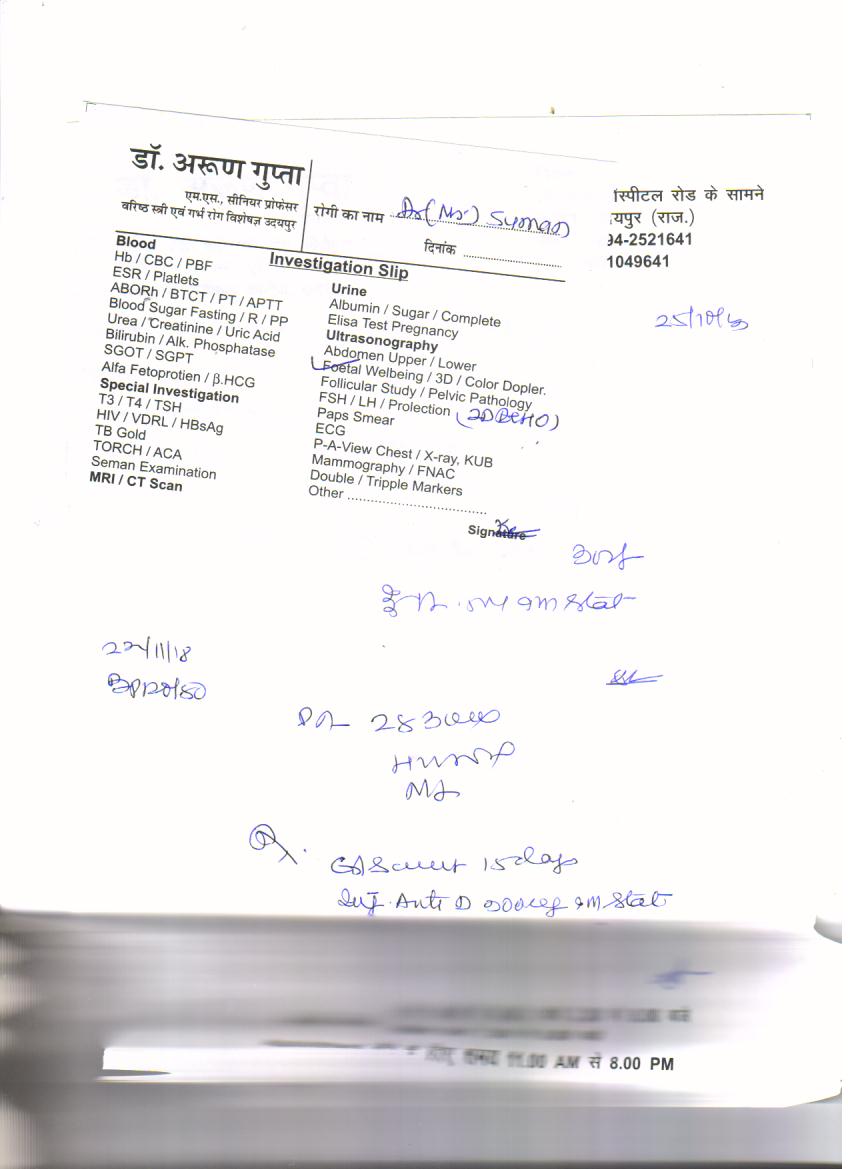 डॉ. अरूण गुप्ता
एम.एस., सीनियर प्रोफेसर
वरिष्ठ स्त्री एवं गर्भ रोग विशेषज्ञ उदयपुर
रोगी का नाम Suman
दिनांक
स्पीटल रोड के सामने
यपुर (राज.)
94-2521641
1049641
Investigation Slip
Blood
Hb / CBC / PBF
ESR / Platlets
ABORh / BTCT / PT / APTT
Blood Sugar Fasting / R / PP
Urea / Creatinine / Uric Acid
Bilirubin / Alk. Phosphatase
SGOT / SGPT
Alfa Fetoprotien / β.HCG
Special Investigation
T3 / T4 / TSH
HIV / VDRL / HBsAg
TB Gold
TORCH / ACA
Seman Examination
MRI / CT Scan
Urine
Albumin / Sugar / Complete
Elisa Test Pregnancy
Ultrasonography
Abdomen Upper / Lower
Foetal Welbeing / 3D / Color Dopler.
Follicular Study / Pelvic Pathology
FSH / LH / Prolection (2D ECHO)
Paps Smear
ECG
P-A-View Chest / X-ray, KUB
Mammography / FNAC
Double / Tripple Markers
Other
Signature
25/10/
IM Stat
22/11/18
BP 120/80
PA 28
15 days
Inj. Anti D 300mcg IM Stat
11.00 AM से 8.00 PM